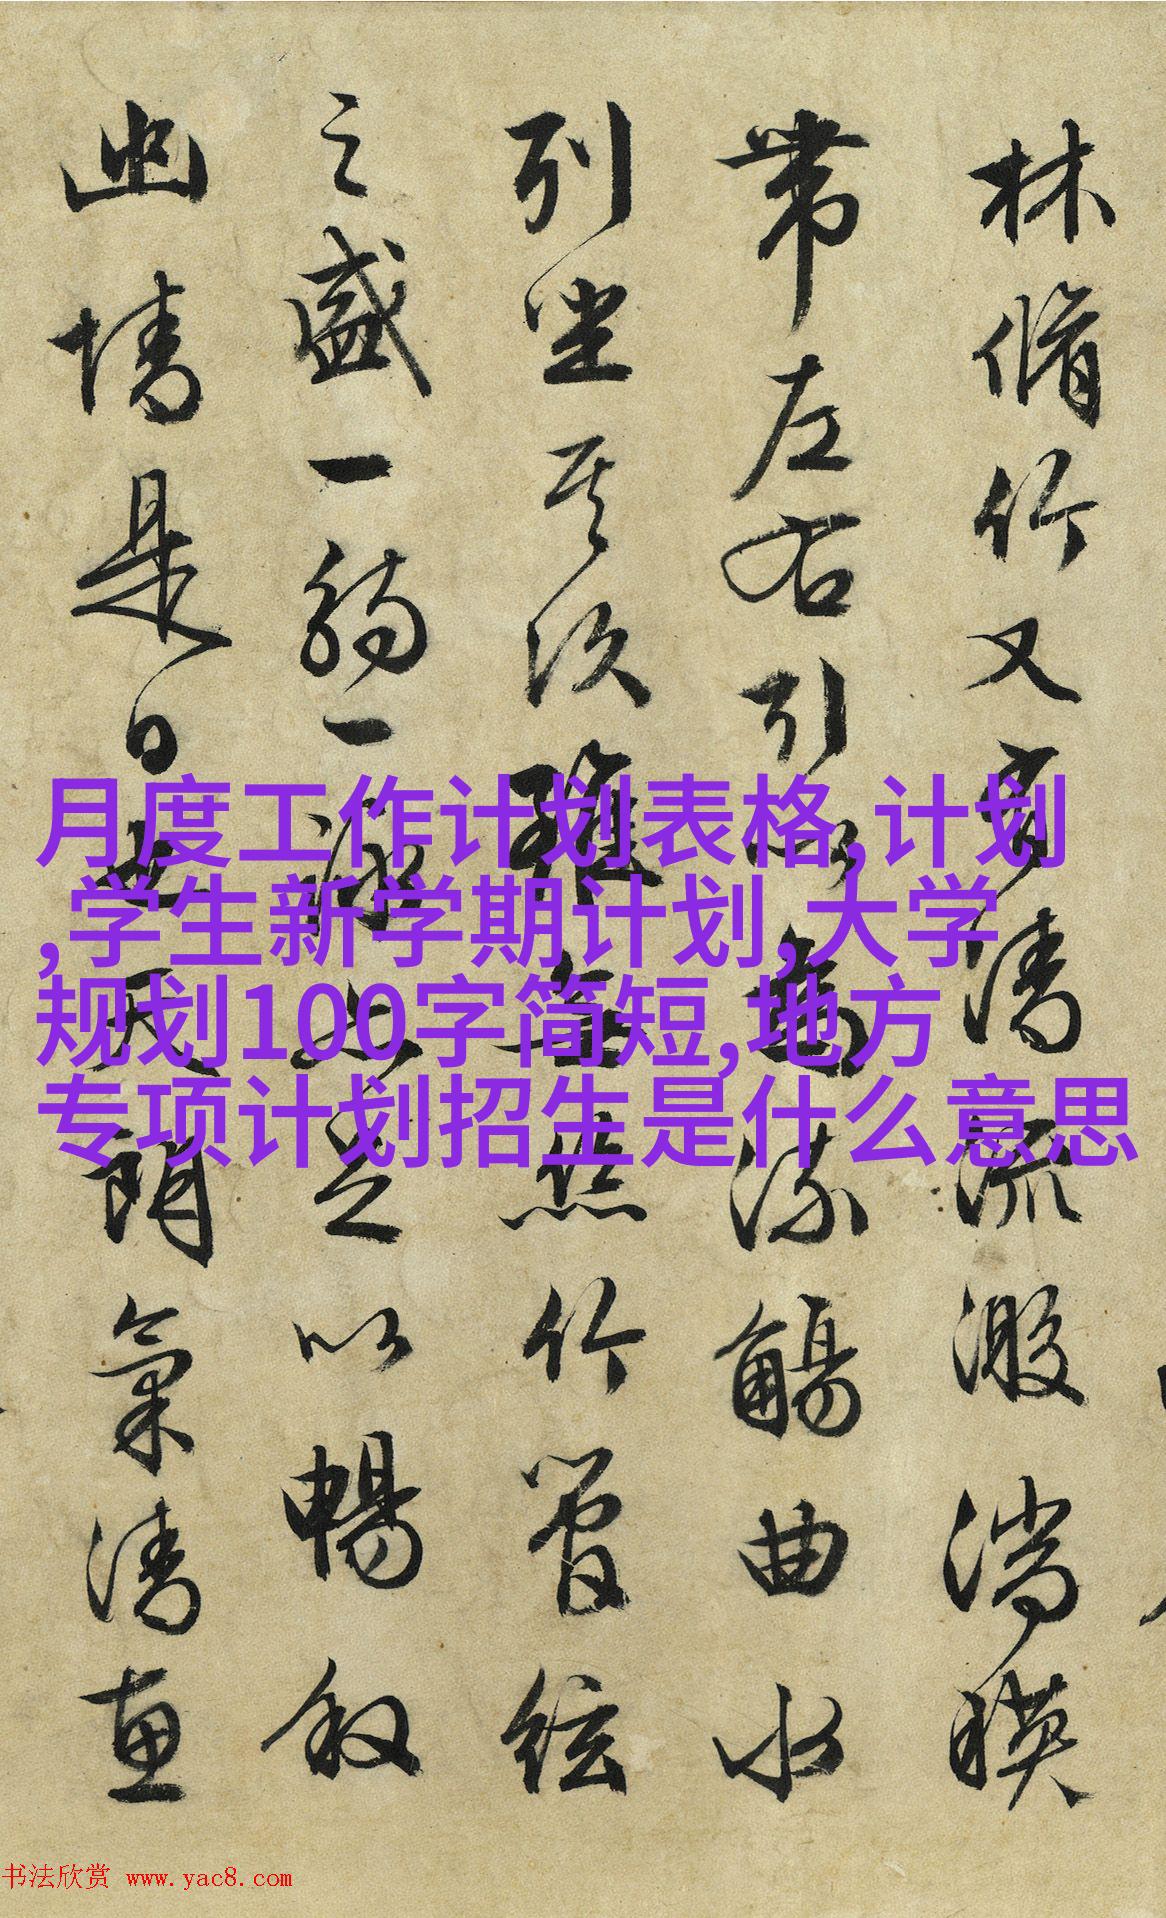 林脩竹又有清流激湍暎
帶左右引以為流觴曲水
列坐其次雖無絲竹管絃
之盛一觴一詠亦足以暢叙
幽情是日也天朗氣清惠
月度工作计划表格,计划
,学生新学期计划,大学
规划100字简短,地方
专项计划招生是什么意思
书法欣赏 www.yac8.com